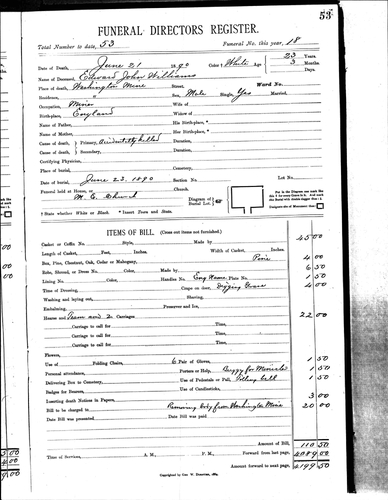 53
FUNERAL DIRECTORS REGISTER.
Total Number to date, 53 Funeral No. this year, 18
Date of Death, June 21 1890 Color † White Age 23 Years. 3 Months. Days.
Name of Deceased, Edward John Williams
Place of death, Washington Mine Street. Ward No.
Residence, " Sex, Male Single, Yes Married,
Occupation, Miner Wife of
Birth-place, England Widow of
Name of Father, His Birth-place, *
Name of Mother, Her Birth-place, *
Cause of death, Primary, accidentally killed Duration,
Cause of death, Secondary, Duration,
Certifying Physician,
Place of burial, Cemetery,
Date of burial, June 23, 1890 Section No. Lot No.
Funeral held at House, or Church.
M. E. Church
Diagram of Burial Lot,
† State whether White or Black. * Insert Town and State.
ITEMS OF BILL. (Cross out items not furnished.)
Casket or Coffin No. Style, Made by 45 00
Length of Casket, Feet, Inches. Width of Casket, Inches.
Box, Pine, Chestnut, Oak, Cedar or Mahogany, Pine 4 00
Robe, Shroud, or Dress No. Color, Made by 6 50
Lining No. Color, Handles No. Eng Name Plate No. 1 50
Time of Dressing, Crape on door, Digging Grave 4 00
Washing and laying out, Shaving,
Embalming, Preserver and Ice,
Hearse Team and 2 Carriages 22 00
Carriage to call for Time,
Carriage to call for Time,
Carriage to call for Time,
Carriage to call for Time,
Flowers,
Use of Folding Chairs, 6 Pairs of Gloves, 1 50
Personal attendance, Porters or Help, Buggy for Minister 1 50
Delivering Box to Cemetery, Use of Pedestals or Pall, Tolling bell 1 50
Badges for Bearers, Use of Candlesticks,
Inserting death Notices in Papers, 3 00
Bill to be charged to Removing body from Washington Mine 20 00
Date Bill was presented Date Bill was paid
Amount of Bill, 110 50
Time of Services, A. M., P. M. Forward from last page, 4089 00
Amount forward to next page, 4199 50